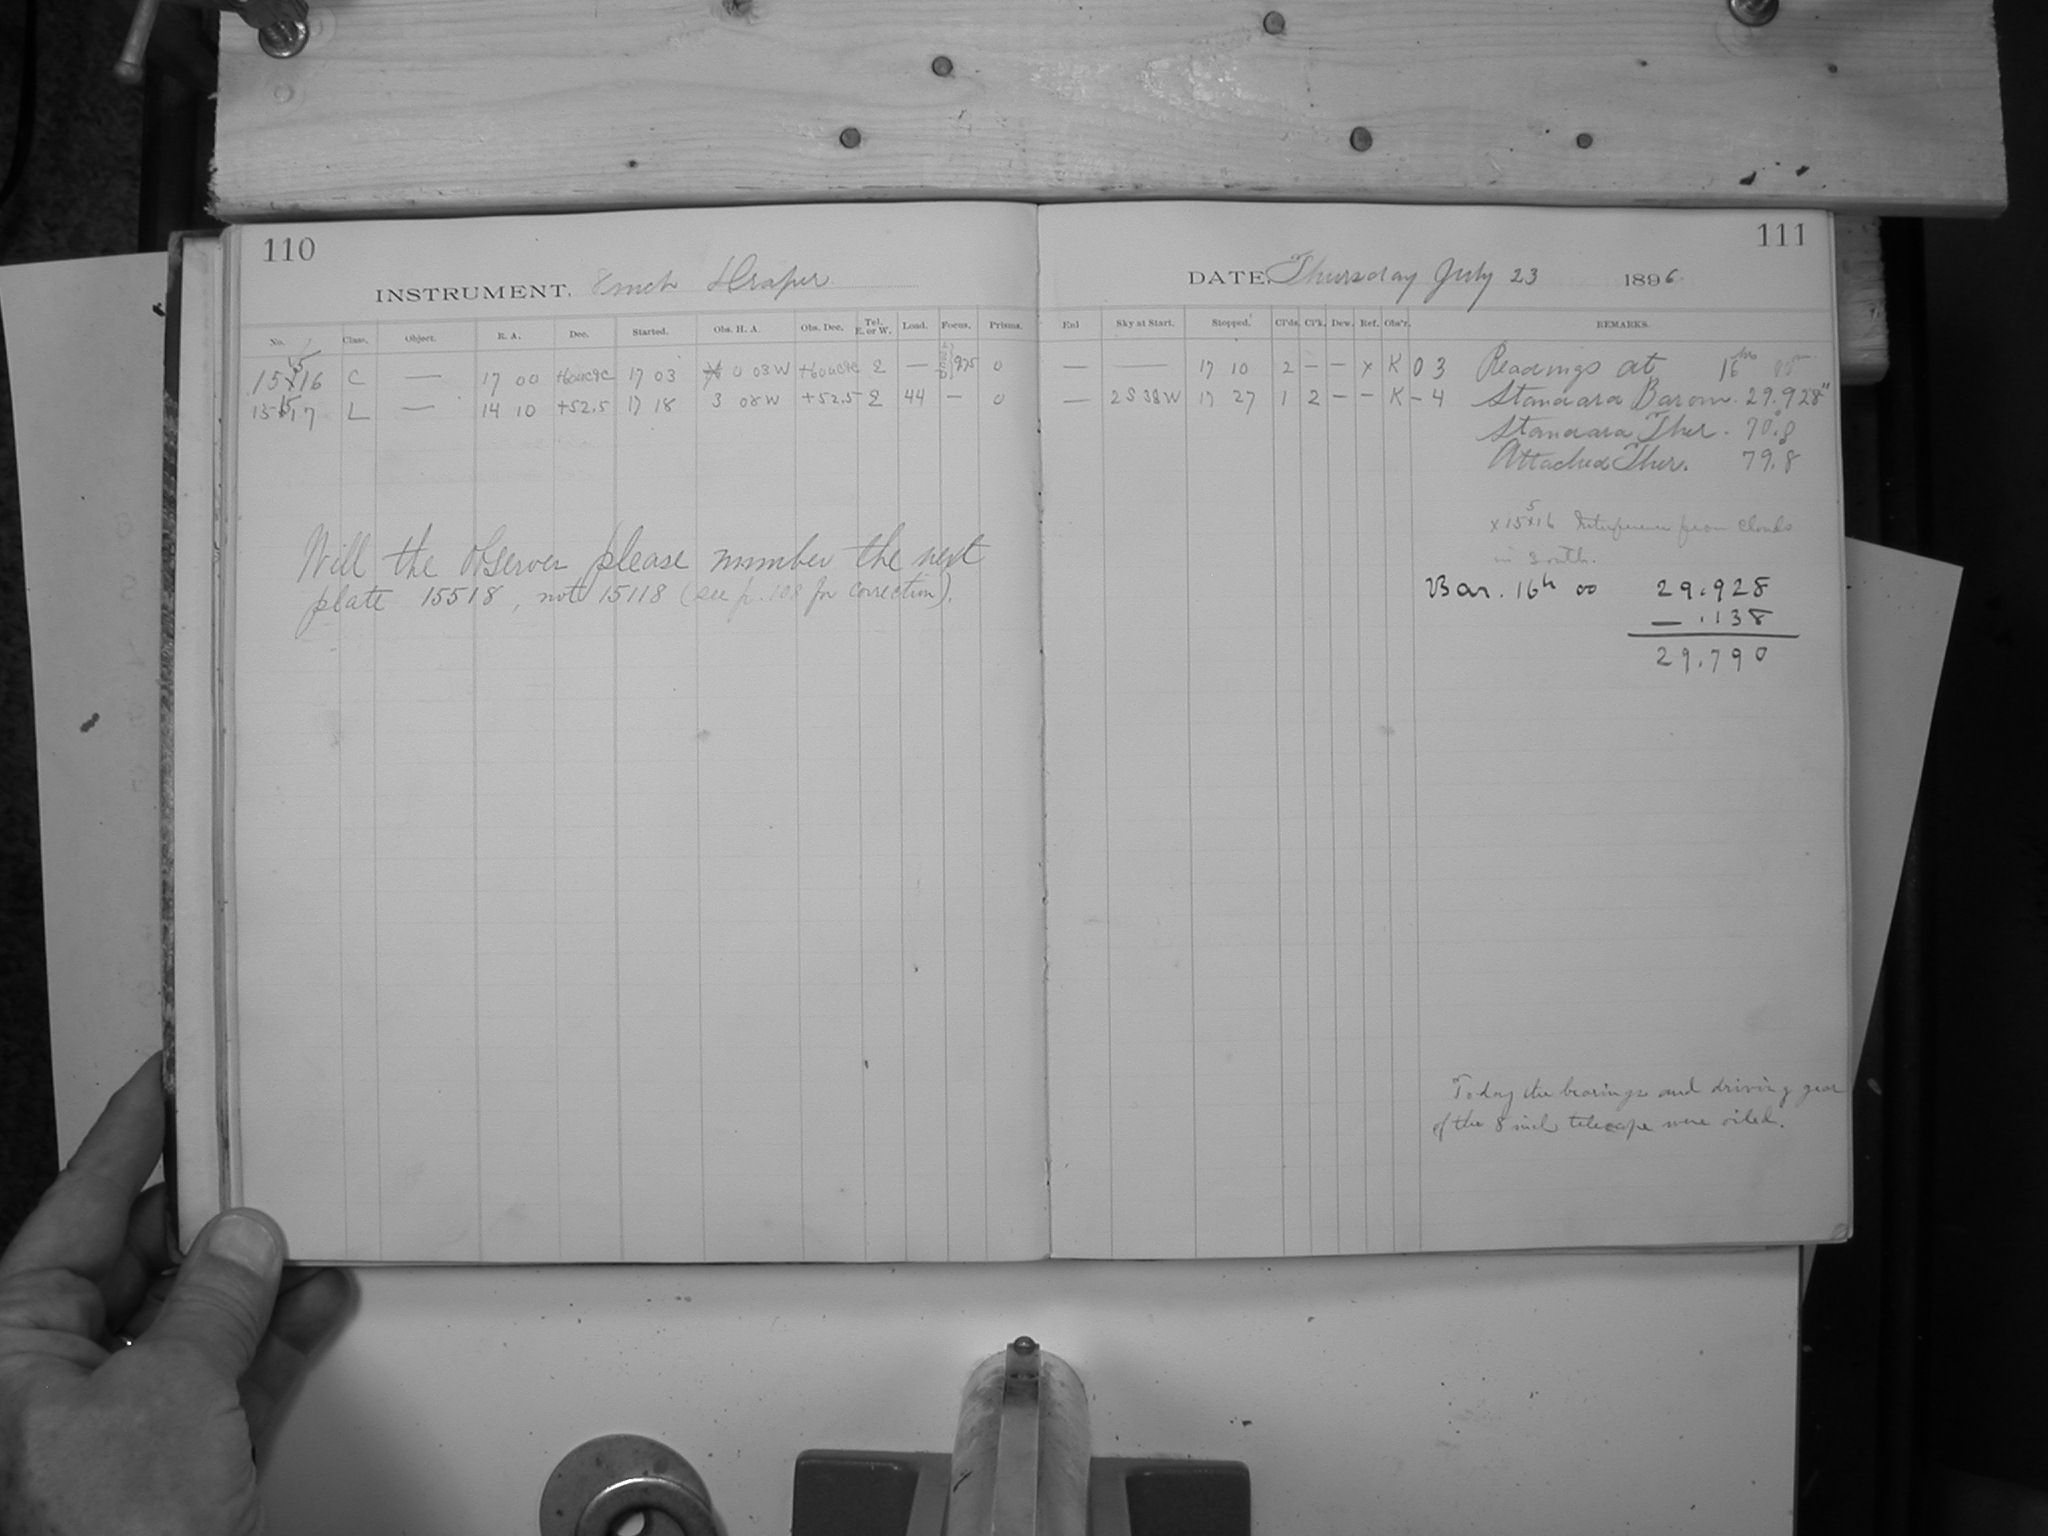 110
INSTRUMENT. 8 inch Draper
No. Class. Object. R. A. Dec. Started. Obs. H. A. Obs. Dec. Tel. E. or W. Load. Focus. Prisms.
15516 C — 17 00 17 03 0 03W — 975 0
15517 L — 14 10 +52.5 17 18 3 08W +52.5 E 44 — 0
Will the observer please number the next
plate 15518, not 15118 (see p. 108 for correction).
111
DATE, Thursday July 23 1896
Exl Sky at Start. Stopped. Cl'ds. Cl'k. Dew. Ref. Obs'r. REMARKS.
— — 17 10 2 – – x K 0 3 Readings at 16hrs 00m
— 2S 38W 17 27 1 2 – – K – 4 Standard Barom. 29.928"
Standard Ther. 70.8
Attached Ther. 79.8
x 15516 Interference from clouds
in South.
Bar. 16h 00 29.928
— .138
29.790
Today the bearings and driving gear
of the 8 inch telescope were oiled.